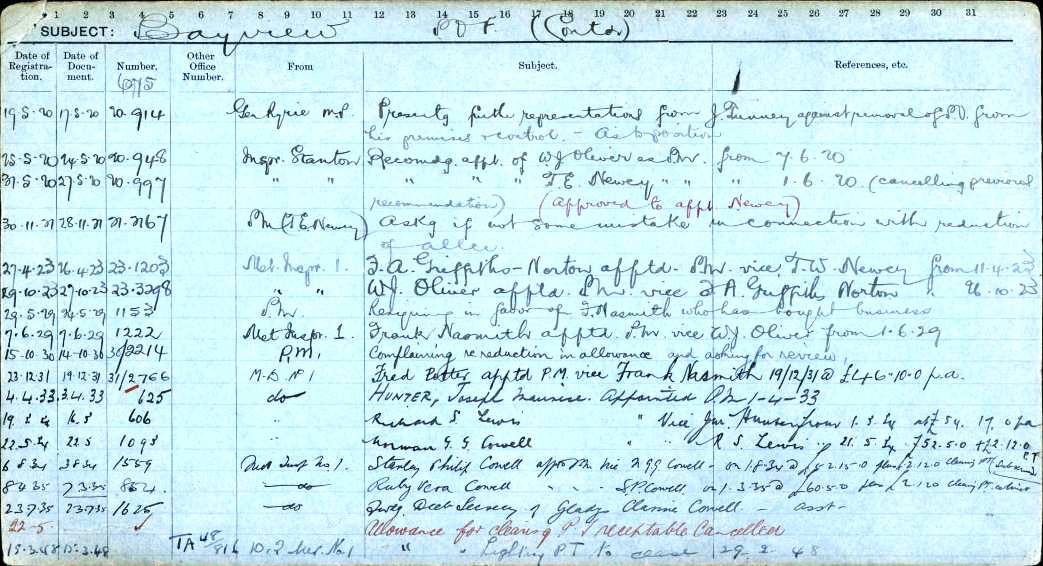 1 2 3 4 5 6 7 8 9 10 11 12 13 14 15 16 17 18 19 20 21 22 23 24 25 26 27 28 29 30 31
SUBJECT: Bayview P.O.F. (Contd)
Date of Registration. Date of Document. Number. Other Office Number. From Subject. References, etc.
675
19.5.20 17.5.20 20.914 Gen Ryrie M.P. Presents furth representations from J. Tunney against removal of P.O. from
his premises & control. - As to position
25.5.20 24.5.20 20.948 Inspr. Stanton Recomdg. appt. of W J Oliver as P.M. from 7.6.20
31.5.20 27.5.20 20.997 " " " " " T.E. Newey " " " 1.6.20. (cancelling previous
recommendation) (Approved to appt Newey)
30.11.21 28.11.21 21.2167 P.M (T E Newey) Askg if not some mistake in connection with reduction
of allce.
27.4.23 26.4.23 23.1203 Met. Inspr. 1. F.A. Griffiths-Norton apptd. P.M. vice T.W. Newey from 11.4.23
29.10.23 27.10.23 23.3298 " " W.J. Oliver apptd. P.M. vice F A Griffiths Norton " 26.10.23
29.5.29 24.5.29 1153 P.M. Resigning in favor of F. Nasmith who has bought business
7.6.29 7.6.29 1222 Met Inspr. 1 Frank Nasmith apptd. P.M. vice WJ Oliver from 1.6.29
15.10.30 14.10.30 30/2214 P.M. Complaining re reduction in allowance and asking for review.
23.12.31 19.12.31 31/2766 M.D. No 1 Fred Potter apptd P.M. vice Frank Nasmith 19/12/31 @ £46-10-0 p.a.
4.4.33 3.4.33 625 do HUNTER, Joseph Maurice. Appointed P.M 1-4-33
606 " Richard S. Lewis " Vice Hunter from
22.5.34 22.5 1093 " Norman G. G. Cowell " " R S. Lewis 21.5.34 £52.5.0 + £2.12.0
6.8.34 3.8.34 1559 Dist Insp No 1. Stanley Philip Cowell appt P.M. vice N GG Cowell - on 1.8.34 @ £62.15.0 plus £2.12.0 clearing P.T.
8.4.35 7.3.35 854 do Ruby Vera Cowell " S.P. Cowell. on 1.3.35 @ £60.5.0 plus £2.12.0 clearing PT
23.7.35 23.7.35 1625 do Decl. Secrecy of Gladys Cowell - asst -
22-5- Allowance for clearing P T receptable Cancelled
15.3.48 12.3.48 TA 48/816 No. 1 " " Lighting P T to cease 29.2.48